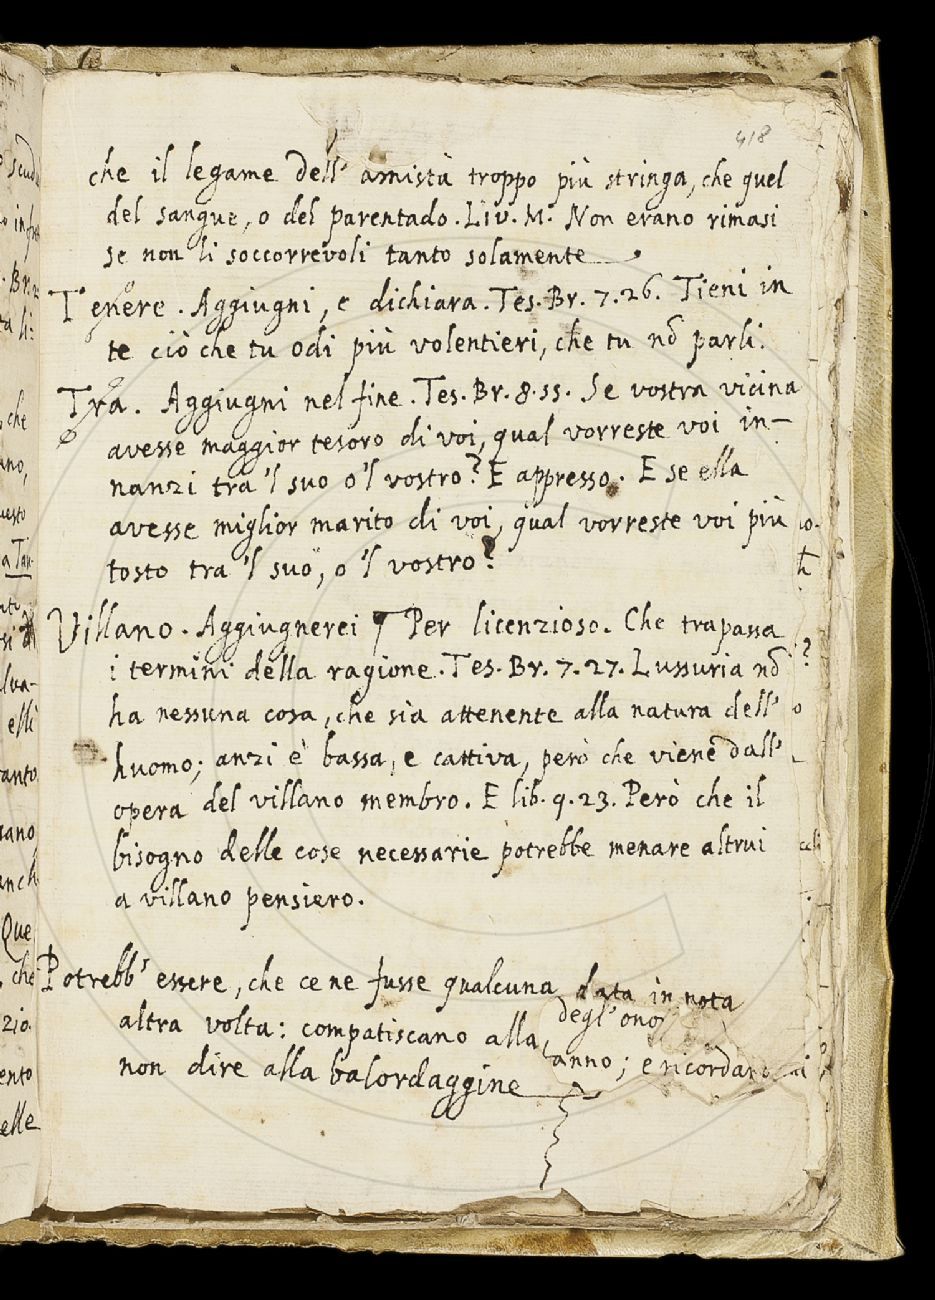 418
che il legame dell' amistà troppo più stringa, che quel
del sangue, o del parentado. Liv. M. Non erano rimasi
se non li soccorrevoli tanto solamente
Tenere. Aggiugni, e dichiara. Tes. Br. 7. 26. Tieni in
te ciò che tu odi più volentieri, che tu nō parli.
Tra. Aggiugni nel fine. Tes. Br. 8. 55. Se vostra vicina
avesse maggior tesoro di voi, qual vorreste voi in-
nanzi tra 'l suo o 'l vostro? E appresso. E se ella
avesse miglior marito di voi, qual vorreste voi più
tosto tra 'l suo, o 'l vostro?
Villano. Aggiugnerei ¶ Per licenzioso. Che trapassa
i termini della ragione. Tes. Br. 7. 27. Lussuria nō
ha nessuna cosa, che sia attenente alla natura dell'
huomo; anzi è bassa, e cattiva, però che viene dall'
opera del villano membro. E lib. 9. 23. Però che il
bisogno delle cose necessarie potrebbe menare altrui
a villano pensiero.
Potrebb' essere, che ce ne fusse qualcuna data in nota
altra volta: compatiscano alla degl' ono
non dire alla balordaggine anno; e ricordar